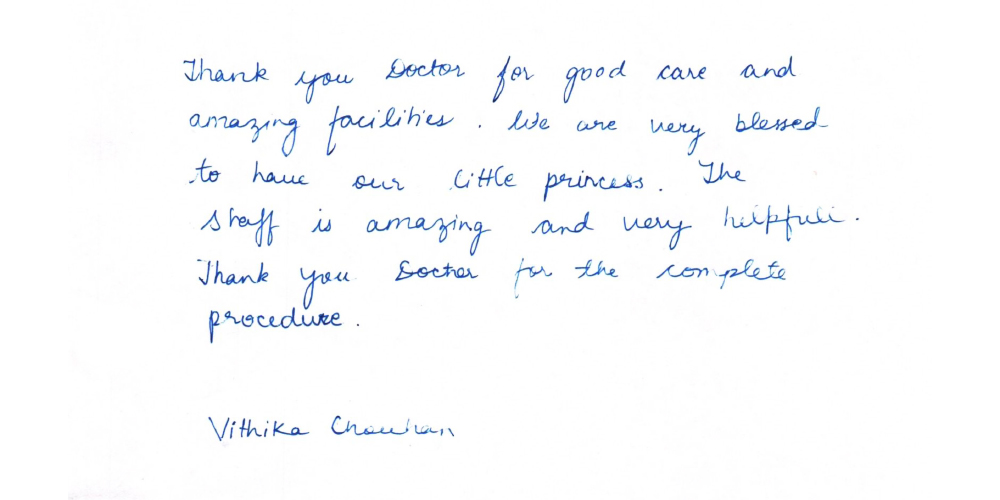 Thank you Doctor for good care and
amazing facilities. We are very blessed
to have our little princess. The
staff is amazing and very helpfull.
Thank you Doctor for the complete
procedure.
Vithika Chouhan